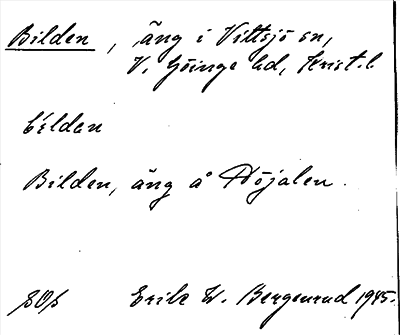 Bilden, äng i Vittsjö sn,
V. Göinge hd, Krist. l.
bílden
Bilden, äng å Höjalen.
Erik W. Bergenrud 1945.